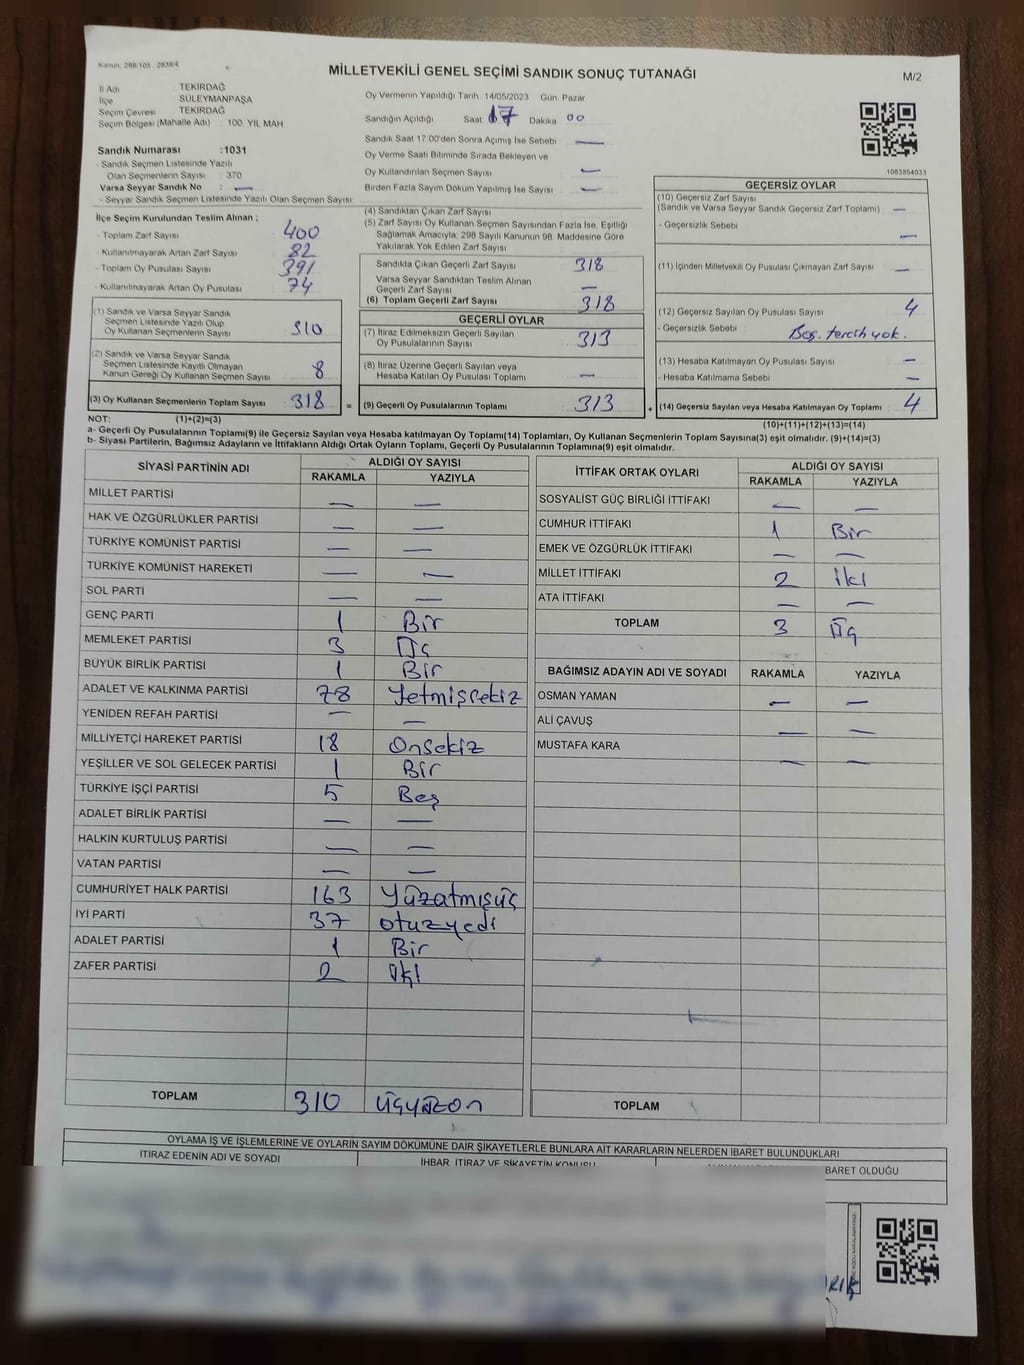 Kanun. 298/105 , 2839/4
MİLLETVEKİLİ GENEL SEÇİMİ SANDIK SONUÇ TUTANAĞI
M/2
İl Adı TEKİRDAĞ
İlçe SÜLEYMANPAŞA
Seçim Çevresi TEKİRDAĞ
Seçim Bölgesi (Mahalle Adı) : 100. YIL MAH
Oy Vermenin Yapıldığı Tarih 14/05/2023 Gün Pazar
Sandığın Açıldığı Saat 17 Dakika 00
Sandık Saat 17:00'den Sonra Açımış İse Sebebi —
Oy Verme Saati Bitiminde Sırada Bekleyen ve
Oy Kullandırılan Seçmen Sayısı —
Birden Fazla Sayım Döküm Yapılmış İse Sayısı —
1083854033
Sandık Numarası : 1031
- Sandık Seçmen Listesinde Yazılı
Olan Seçmenlerin Sayısı : 370
Varsa Seyyar Sandık No : —
- Seyyar Sandık Seçmen Listesinde Yazılı Olan Seçmen Sayısı
İlçe Seçim Kurulundan Teslim Alınan ;
- Toplam Zarf Sayısı 400
- Kullanılmayarak Artan Zarf Sayısı 82
- Toplam Oy Pusulası Sayısı 391
- Kullanılmayarak Artan Oy Pusulası 74
(1) Sandık ve Varsa Seyyar Sandık
Seçmen Listesinde Yazılı Olup
Oy Kullanan Seçmenlerin Sayısı 310
(2) Sandık ve Varsa Seyyar Sandık
Seçmen Listesinde Kayıtlı Olmayan
Kanun Gereği Oy Kullanan Seçmen Sayısı 8
(3) Oy Kullanan Seçmenlerin Toplam Sayısı 318 =
(4) Sandıktan Çıkan Zarf Sayısı
(5) Zarf Sayısı Oy Kullanan Seçmen Sayısından Fazla İse, Eşitliği
Sağlamak Amacıyla, 298 Sayılı Kanunun 98. Maddesine Göre
Yakılarak Yok Edilen Zarf Sayısı
Sandıkta Çıkan Geçerli Zarf Sayısı 318
Varsa Seyyar Sandıktan Teslim Alınan
Geçerli Zarf Sayısı —
(6) Toplam Geçerli Zarf Sayısı 318
GEÇERLİ OYLAR
(7) İtiraz Edilmeksizin Geçerli Sayılan
Oy Pusulalarının Sayısı 313
(8) İtiraz Üzerine Geçerli Sayılan veya
Hesaba Katılan Oy Pusulası Toplamı —
(9) Geçerli Oy Pusulalarının Toplamı 313 +
GEÇERSİZ OYLAR
(10) Geçersiz Zarf Sayısı
(Sandık ve Varsa Seyyar Sandık Geçersiz Zarf Toplamı) —
- Geçersizlik Sebebi —
(11) İçinden Milletvekili Oy Pusulası Çıkmayan Zarf Sayısı —
(12) Geçersiz Sayılan Oy Pusulası Sayısı 4
- Geçersizlik Sebebi Boş. tercih yok.
(13) Hesaba Katılmayan Oy Pusulası Sayısı —
- Hesaba Katılmama Sebebi —
(14) Geçersiz Sayılan veya Hesaba Katılmayan Oy Toplamı 4
NOT: (1)+(2)=(3) (10)+(11)+(12)+(13)=(14)
a- Geçerli Oy Pusulalarının Toplamı(9) ile Geçersiz Sayılan veya Hesaba katılmayan Oy Toplamı(14) Toplamları, Oy Kullanan Seçmenlerin Toplam Sayısına(3) eşit olmalıdır. (9)+(14)=(3)
b- Siyasi Partilerin, Bağımsız Adayların ve İttifakların Aldığı Ortak Oyların Toplamı, Geçerli Oy Pusulalarının Toplamına(9) eşit olmalıdır.
SİYASİ PARTİNİN ADI ALDIĞI OY SAYISI
RAKAMLA YAZIYLA
MİLLET PARTİSİ — —
HAK VE ÖZGÜRLÜKLER PARTİSİ — —
TÜRKİYE KOMÜNİST PARTİSİ — —
TÜRKİYE KOMÜNİST HAREKETİ — —
SOL PARTİ — —
GENÇ PARTİ 1 Bir
MEMLEKET PARTİSİ 3 Üç
BÜYÜK BİRLİK PARTİSİ 1 Bir
ADALET VE KALKINMA PARTİSİ 78 Yetmişsekiz
YENİDEN REFAH PARTİSİ — —
MİLLİYETÇİ HAREKET PARTİSİ 18 Onsekiz
YEŞİLLER VE SOL GELECEK PARTİSİ 1 Bir
TÜRKİYE İŞÇİ PARTİSİ 5 Beş
ADALET BİRLİK PARTİSİ — —
HALKIN KURTULUŞ PARTİSİ — —
VATAN PARTİSİ — —
CUMHURİYET HALK PARTİSİ 163 Yüzatmışüç
İYİ PARTİ 37 otuzyedi
ADALET PARTİSİ 1 Bir
ZAFER PARTİSİ 2 iki
TOPLAM 310 üçyüzon
İTTİFAK ORTAK OYLARI ALDIĞI OY SAYISI
RAKAMLA YAZIYLA
SOSYALİST GÜÇ BİRLİĞİ İTTİFAKI — —
CUMHUR İTTİFAKI 1 Bir
EMEK VE ÖZGÜRLÜK İTTİFAKI — —
MİLLET İTTİFAKI 2 iki
ATA İTTİFAKI — —
TOPLAM 3 Üç
BAĞIMSIZ ADAYIN ADI VE SOYADI RAKAMLA YAZIYLA
OSMAN YAMAN — —
ALİ ÇAVUŞ — —
MUSTAFA KARA — —
TOPLAM
OYLAMA İŞ VE İŞLEMLERİNE VE OYLARIN SAYIM DÖKÜMÜNE DAİR ŞİKAYETLERLE BUNLARA AİT KARARLARIN NELERDEN İBARET BULUNDUKLARI
İTİRAZ EDENİN ADI VE SOYADI
İHBAR, İTİRAZ VE ŞİKAYETİN KONUSU
İBARET OLDUĞU